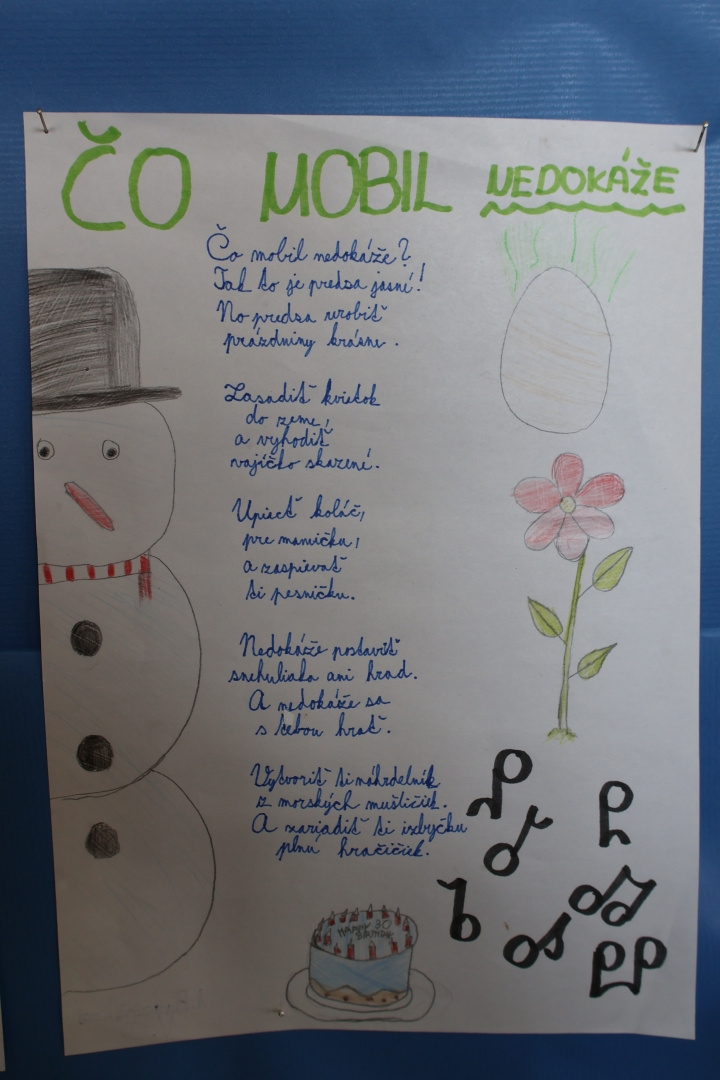 ČO MOBIL NEDOKÁŽE
Čo mobil nedokáže?
Tak to je predsa jasné!
No predsa urobiť
prázdniny krásne.
Zasadiť kvietok
do zeme,
a vyhodiť
vajíčko skazené.
Upiecť koláč,
pre mamičku,
a zaspievať
ti pesničku.
Nedokáže postaviť
snehuliaka ani hrad.
A nedokáže sa
s tebou hrať.
Vytvoriť ti náhrdelník
z morských mušličiek.
A nariadiť ti izbyčku
plnú hračičiek.
HAPPY 30